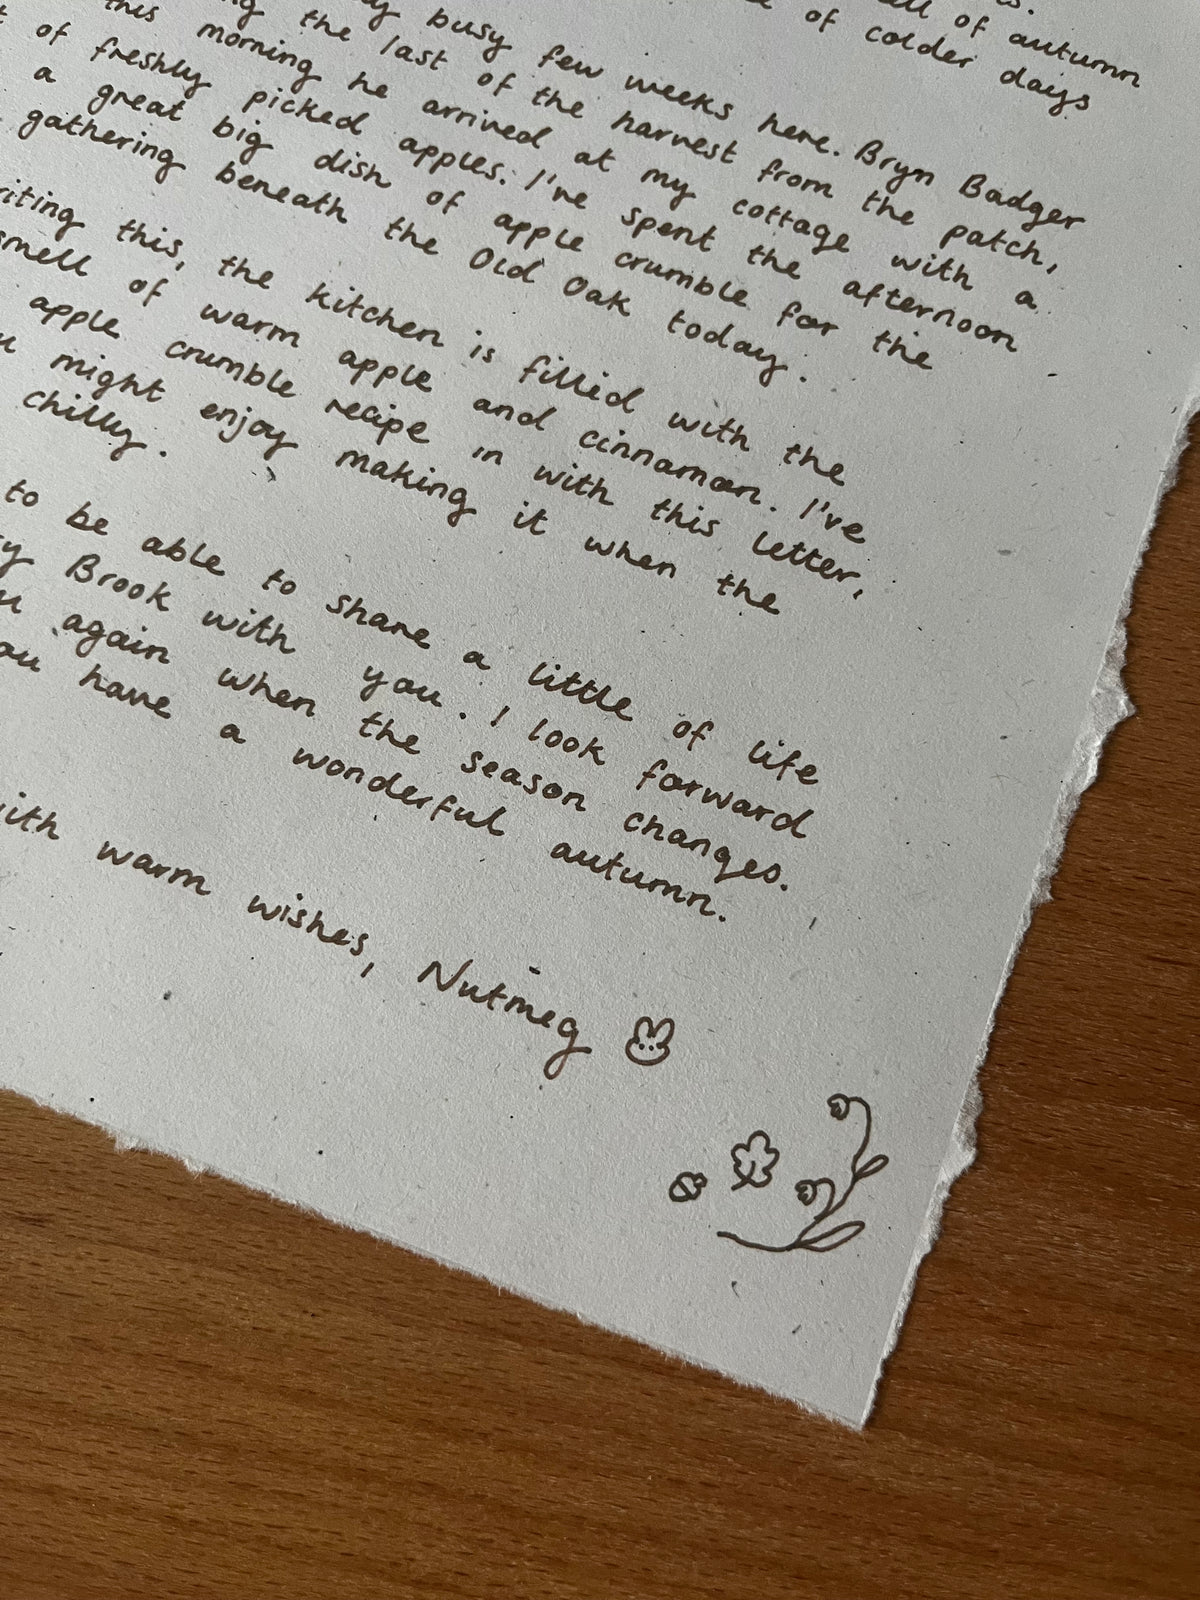 of autumn
of colder days
busy few weeks here. Bryn Badger
the last of the harvest from the patch,
this morning he arrived at my cottage with a
of freshly picked apples. I've spent the afternoon
a great big dish of apple crumble for the
gathering beneath the Old Oak today.
riting this, the kitchen is filled with the
smell of warm apple and cinnamon. I've
apple crumble recipe in with this letter,
might enjoy making it when the
chilly.
to be able to share a little of life
Brook with you. I look forward
again when the season changes.
ou have a wonderful autumn.
ith warm wishes, Nutmeg